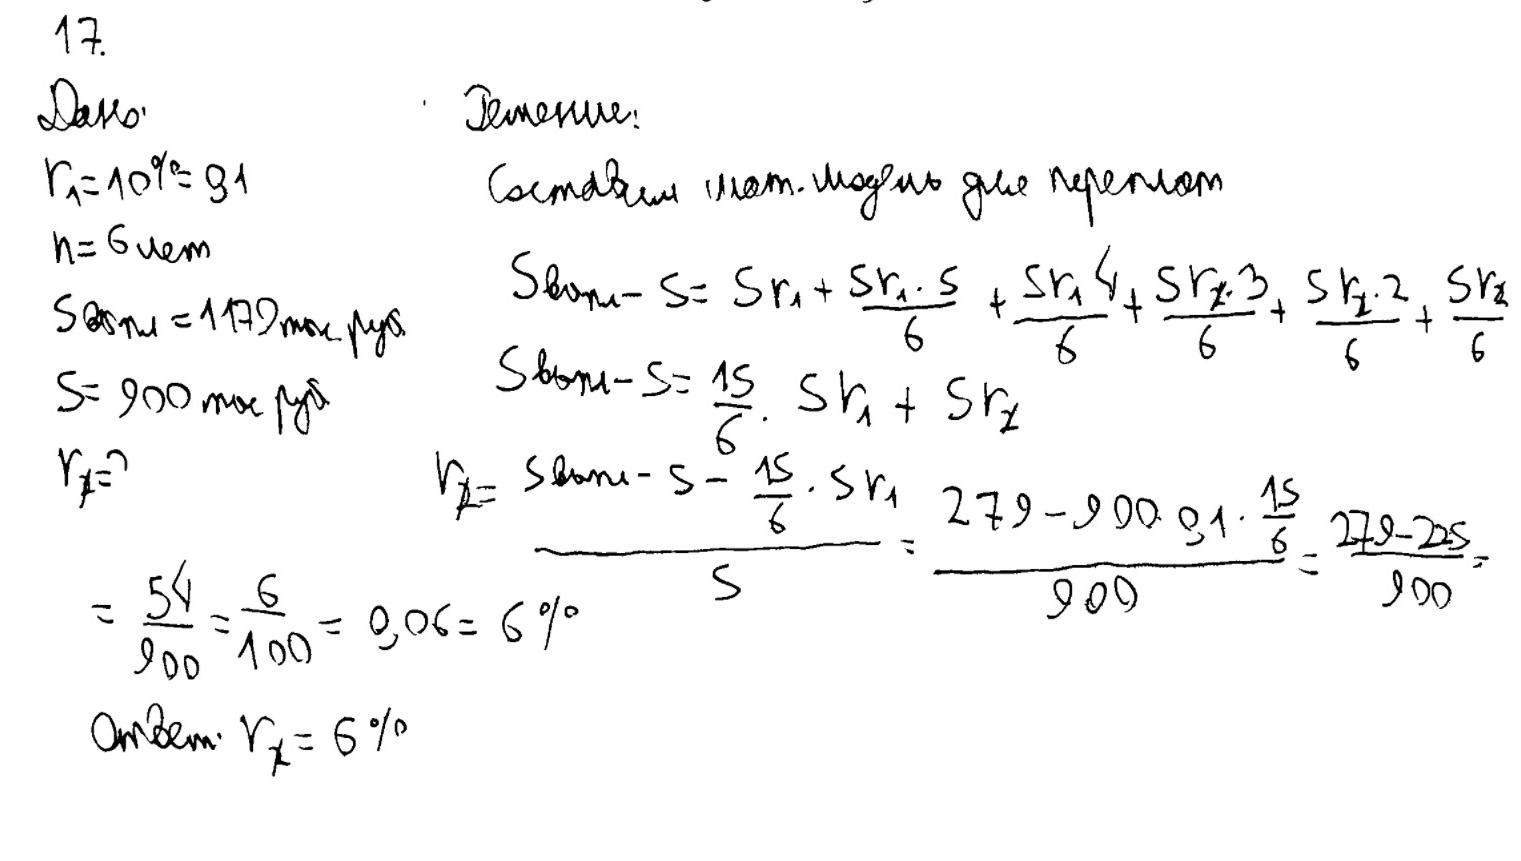 17.
Дано:
r₁=10%=0,1
n=6 лет
Sвып=1179 тыс руб
S=900 тыс руб
rₓ=?
Решение:
Составим мат. модель для переплат
Sвып-S=Sr₁+Sr₁·5/6+Sr₁4/6+Srₓ·3/6+Srₓ·2/6+Srₓ/6
Sвып-S=15/6·Sr₁+Srₓ
rₓ=(Sвып-S-15/6·Sr₁)/S=(279-900·0,1·15/6)/900=(279-225)/900=
=54/900=6/100=0,06=6%
Ответ: rₓ=6%